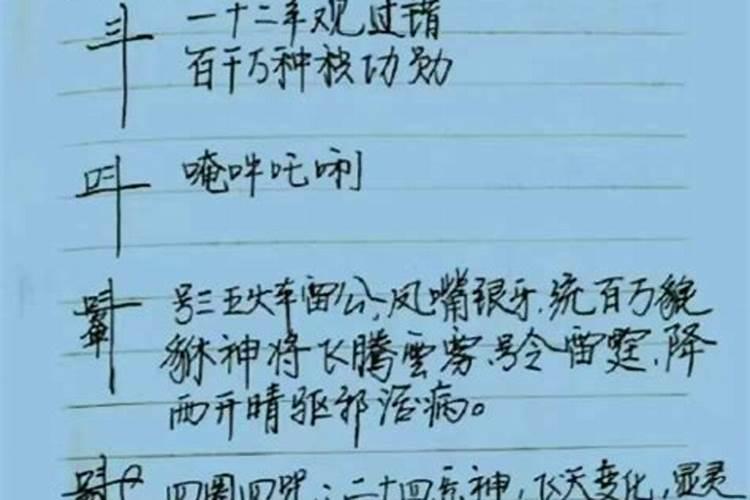 一十二年观过错
百千万种积功勋
唵吽吒唎
号三五火车雷公、凤嘴银牙、统百万貔
貅神将飞腾雲雾、号令雷霆、降
雨开晴驱邪治病。
四圈四咒:二十四元神,飞天变化,显灵